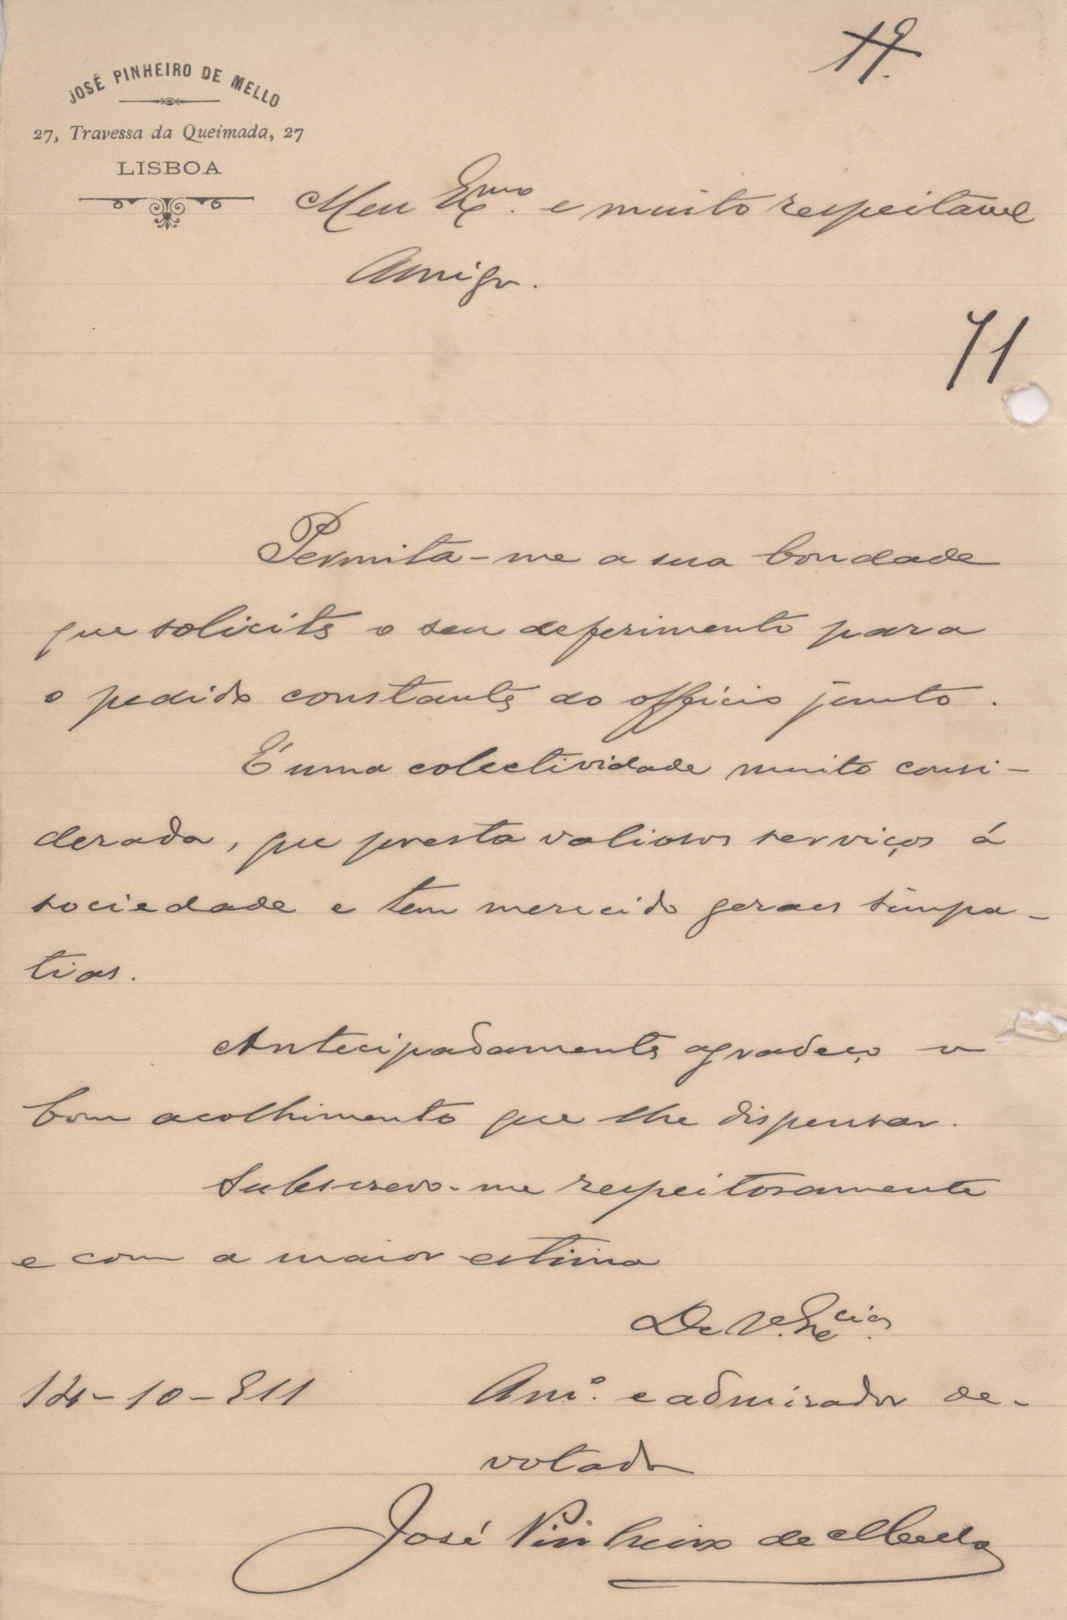 19.
JOSÉ PINHEIRO DE MELLO
27, Travessa da Queimada, 27
LISBOA
Meu Exmo. e muito respeitavel
Amigo.
71
Permita-me a sua bondade
que solicite o seu deferimento para
o pedido constante do officio junto.
É uma colectividade muito consi-
derada, que presta valiosos serviços á
sociedade e tem merecido geraes simpa-
tias.
Antecipadamente agradeço o
bom acolhimento que lhe dispensar.
Subscrevo-me respeitosamente
e com a maior estima
De V. Excia.
14-10-911 Amo. e admirador de-
votado
José Pinheiro de Mello